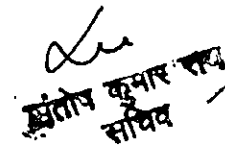 संतोष कुमार राय
सचिव